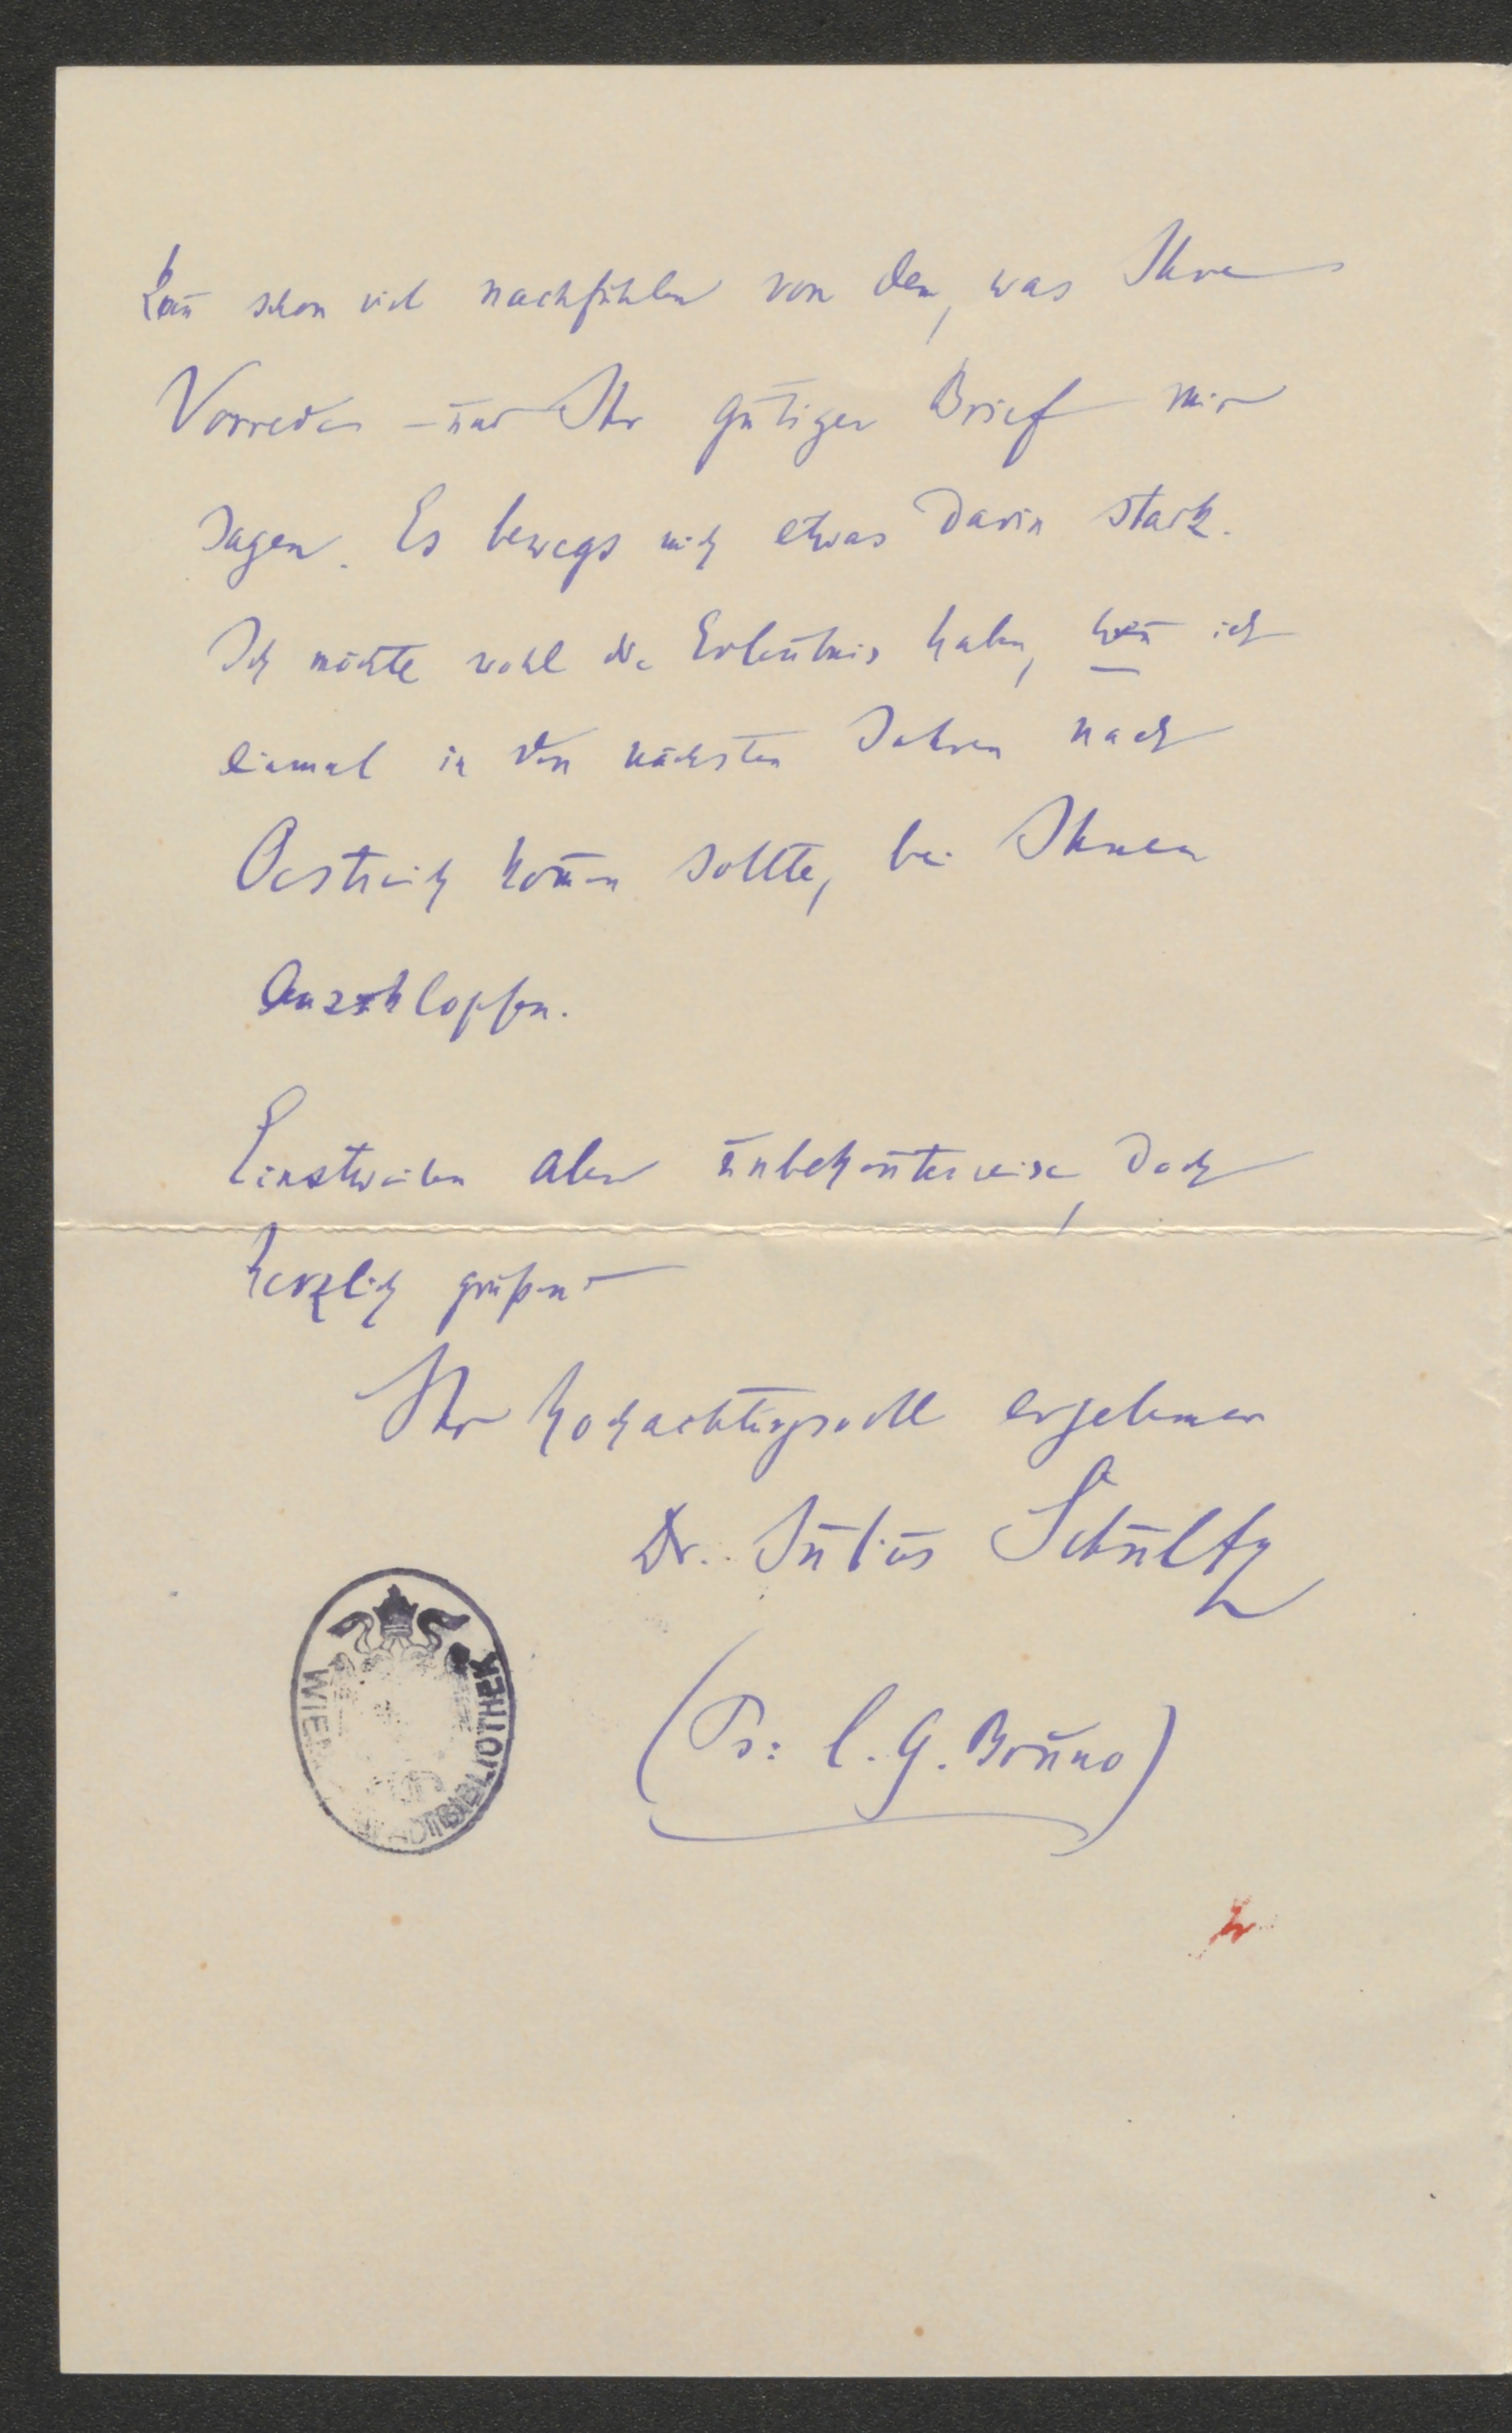 kann schon viel nachfühlen von dem, was Ihre
Vorreden – und Ihr gütiger Brief mir
sagen. Es bewegt mich etwas darin stark.
Ich möchte wohl die Erlaubnis haben, wenn ich
einmal in den nächsten Jahren nach
Oestreich kom̄en sollte, bei Ihnen
anzuklopfen.
Einstweilen aber unbekan̄terweise, doch
herzlich grüßend
Ihr hochachtungsvoll ergebener
Dr. Julius Schultz
(Ps: C. G. Bruno)
WIEN
STADTBIBLIOTHEK